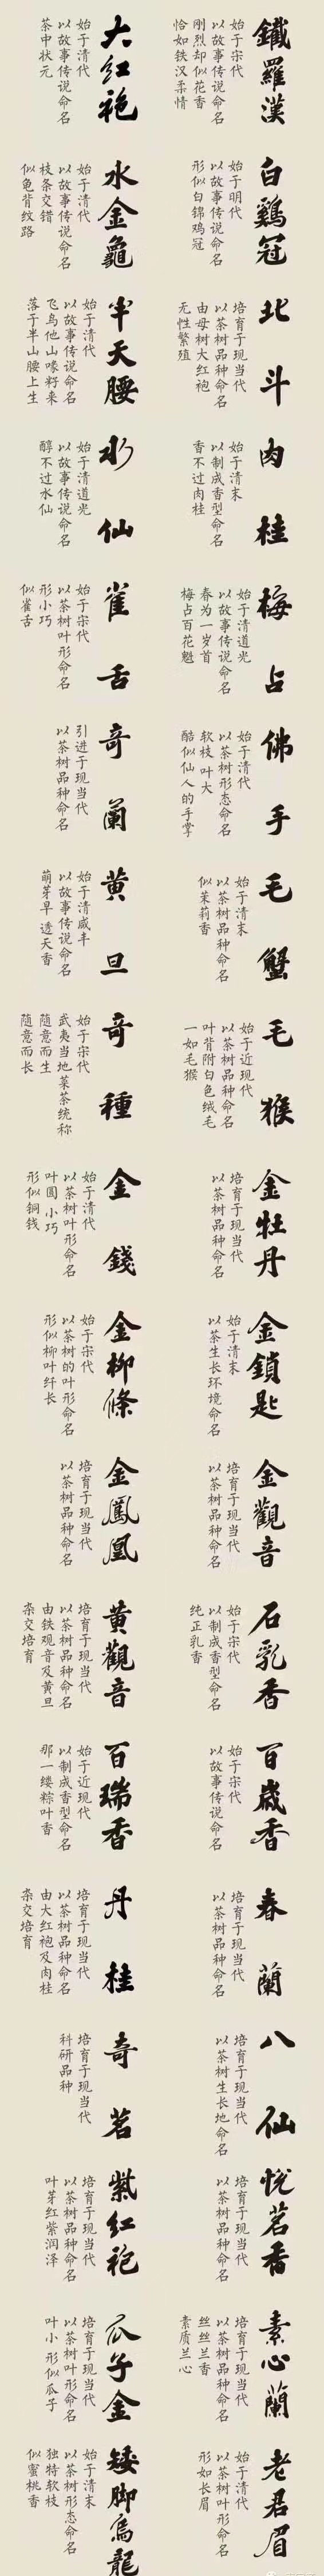 鐵羅漢
始于宋代
以故事传说命名
刚烈却似花香
恰如铁汉柔情
大红袍
始于清代
以故事传说命名
茶中状元
白鷄冠
始于明代
以故事传说命名
形似白锦鸡冠
水金龜
始于清代
以故事传说命名
枝条交错
似龟背纹路
北斗
培育于现当代
以茶树品种命名
由母树大红袍
无性繁殖
半天腰
始于清代
以故事传说命名
飞鸟他山喙籽来
落于半山腰上生
肉桂
始于清末
以制成香型命名
香不过肉桂
水仙
始于清道光
以故事传说命名
醇不过水仙
梅占
始于清道光
以故事传说命名
春为一岁首
梅占百花魁
雀舌
始于宋代
以茶树叶形命名
形小巧
似雀舌
佛手
始于清代
以茶树形态命名
软枝 叶大
酷似仙人的手掌
奇蘭
引进于现当代
以茶树品种命名
毛蟹
始于清末
以茶树品种命名
似茉莉香
黄旦
始于清咸丰
以故事传说命名
萌芽早 透天香
毛猴
始于近现代
以茶树品种命名
叶背附白色绒毛
一如毛猴
奇種
始于宋代
武夷当地菜茶统称
随意而生
随意而长
金牡丹
培育于现当代
以茶树品种命名
金錢
始于清代
以茶树叶形命名
叶圆 小巧
形似铜钱
金鎖匙
始于清末
以茶生长环境命名
金柳條
始于宋代
以茶树的叶形命名
形似柳叶纤长
金觀音
培育于现当代
以茶树品种命名
金鳳凰
培育于现当代
以茶树品种命名
石乳香
始于宋代
以制成香型命名
纯正乳香
黄觀音
培育于现当代
以茶树品种命名
由铁观音及黄旦
杂交培育
百歲香
始于宋代
以故事传说命名
百瑞香
始于近现代
以制成香型命名
那一缕粽叶香
春蘭
培育于现当代
以茶树品种命名
丹桂
培育于现当代
以茶树品种命名
由大红袍及肉桂
杂交培育
八仙
培育于现当代
以茶树生长地命名
奇茗
培育于现当代
科研品种
悦茗香
培育于现当代
以茶树品种命名
紫红袍
培育于现当代
以茶树品种命名
叶芽红紫润泽
素心蘭
培育于现当代
以茶树品种命名
丝丝兰香
素质兰心
瓜子金
培育于现当代
以茶树叶形命名
叶小 形似瓜子
老君眉
始于清代
以茶树叶形命名
形如长眉
矮脚烏龍
始于清末
以茶树形态命名
独特软枝
似蜜桃香